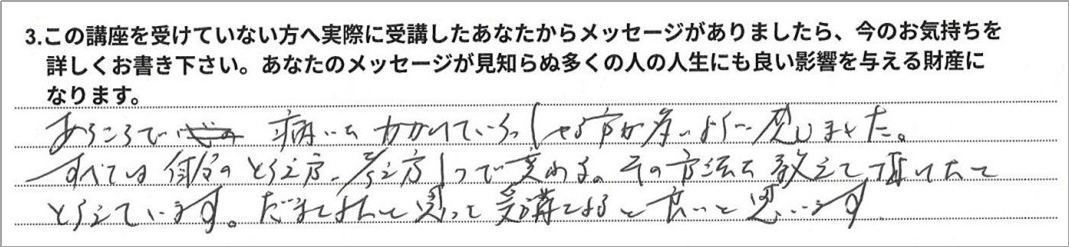 3.この講座を受けていない方へ実際に受講したあなたからメッセージがありましたら、今のお気持ちを
詳しくお書き下さい。あなたのメッセージが見知らぬ多くの人の人生にも良い影響を与える財産に
なります。
あちこちで 病いを かかえていらっしゃる方が多いように思いました。
すべては 自分の とらえ方、考え方1つで変わる。その方法を教えて頂いたと
とらえています。だまされたと思って受講してみると良いと思います。